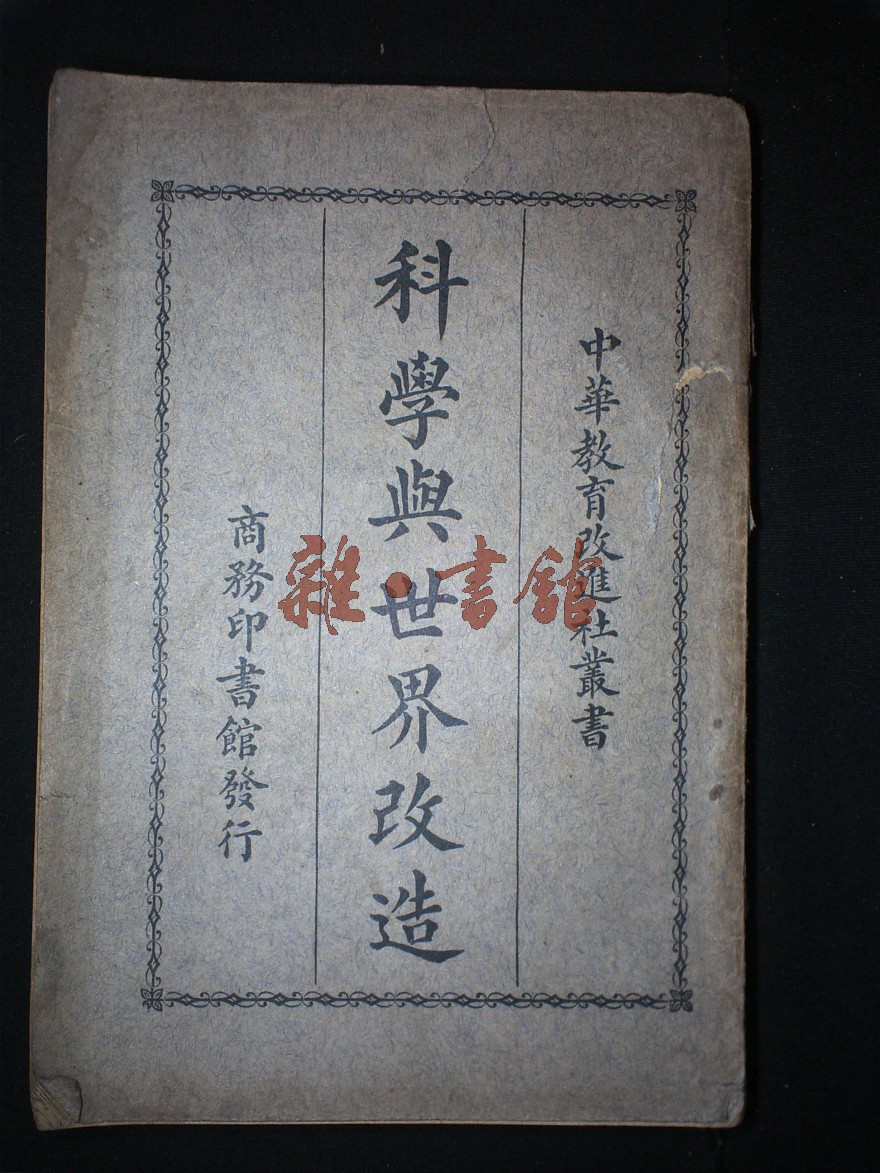 中華教育改進社叢書
科學與世界改造
商務印書館發行
雜·書館